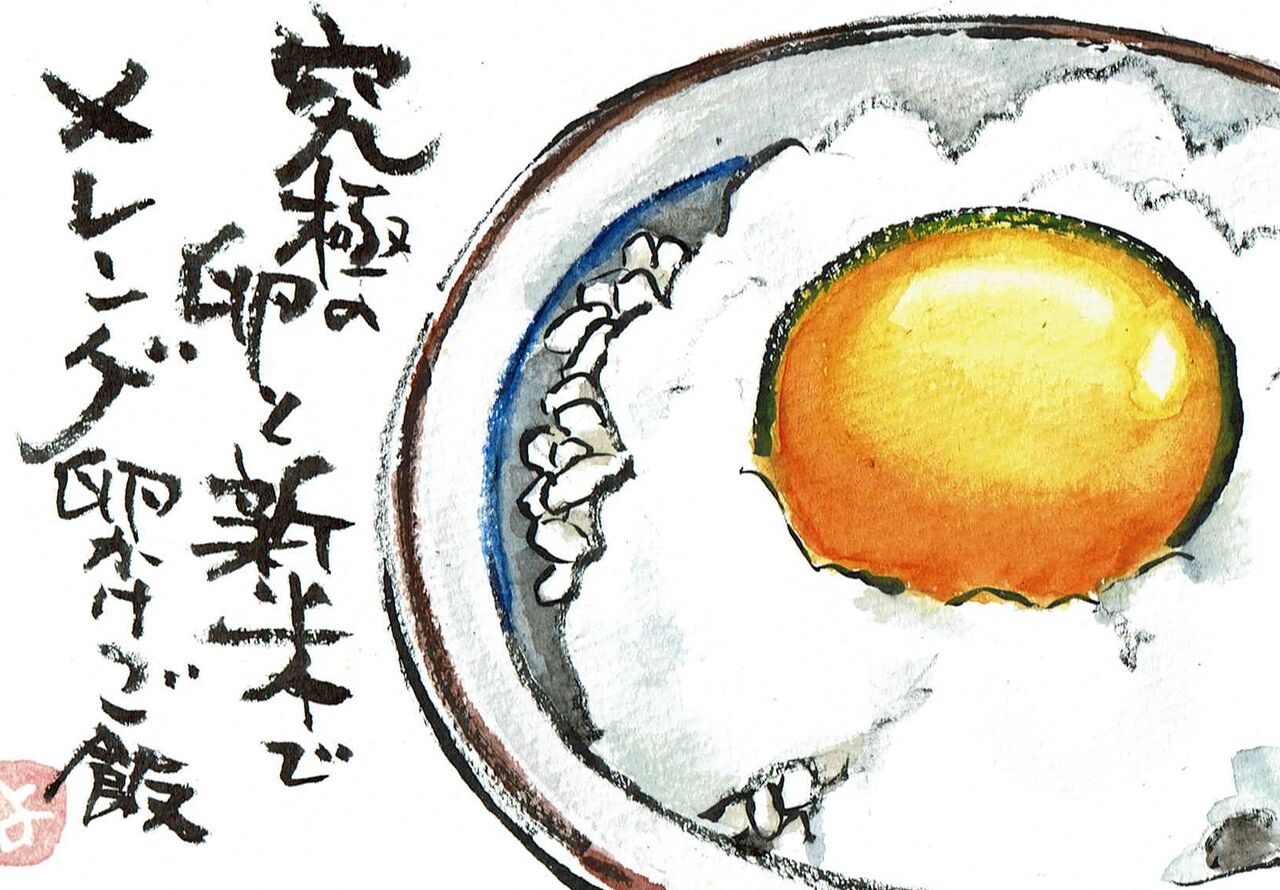 究極の
卵と新米で
メレンゲ卵かけご飯
よ